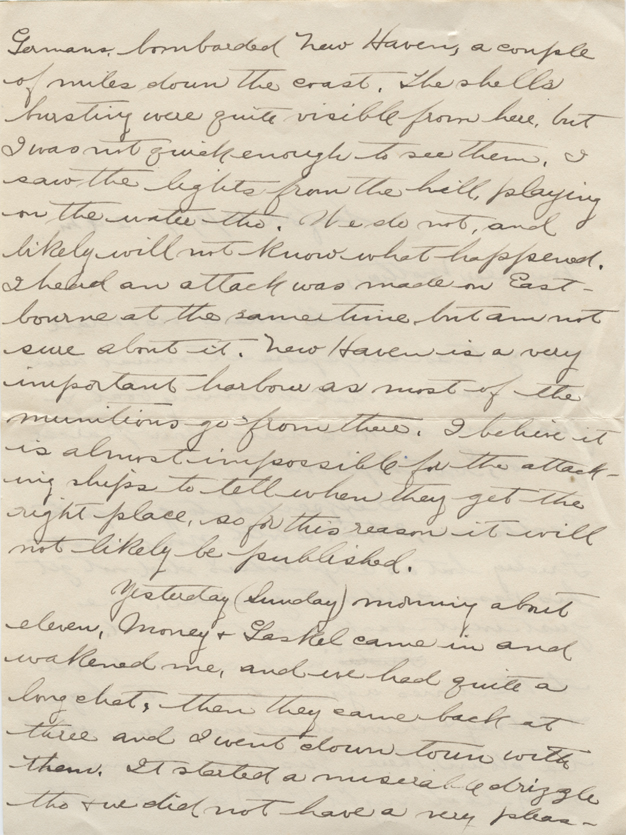 Germans, bombarded New Haven, a couple
of miles down the coast. The shells
bursting were quite visible from here, but
I was not quick enough to see them. I
saw the lights from the hill, playing
on the water tho. We do not, and
likely will not know what happened.
I head an attack was made on East-
bourne at the same time, but am not
sure about it. New Haven is a very
important harbour as most of the
munitions go from there. I believe it
is almost impossible for the attack-
ing ships to tell when they get the
right place, so for this reason it will
not likely be published.
Yesterday (Sunday) morning about
eleven, Money + Gaskel came in and
wakened me, and we had quite a
long chat, then they came back at
three and I went down town with
them. It started a miserable drizzle
tho + we did not have a very pleas-